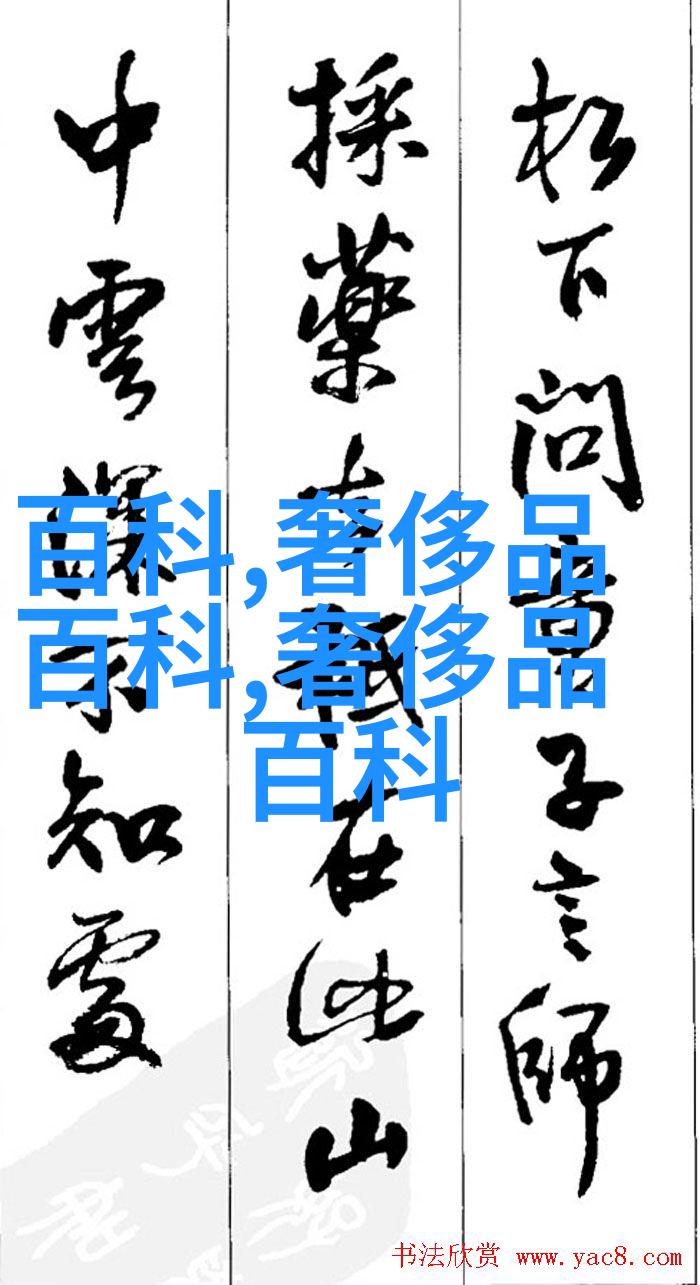 松下問童子言師
採藥去在此山
中雲深不知處
百科,奢侈品
百科,奢侈品
百科
书法欣赏 www.yac8.com